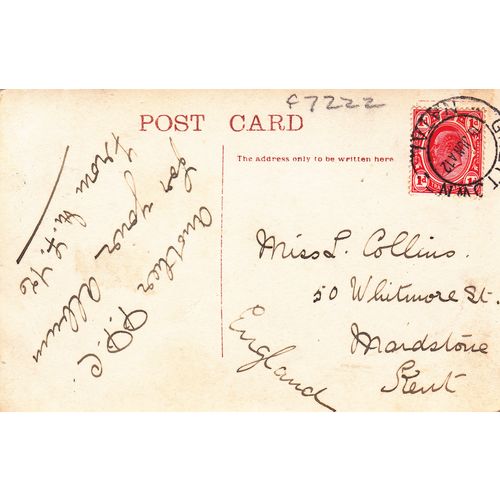 47222
POST CARD
The address only to be written here
1d
Another P.P.C.
for your Album
from
Miss L. Collins.
50 Whitmore St.
Maidstone
Kent
England